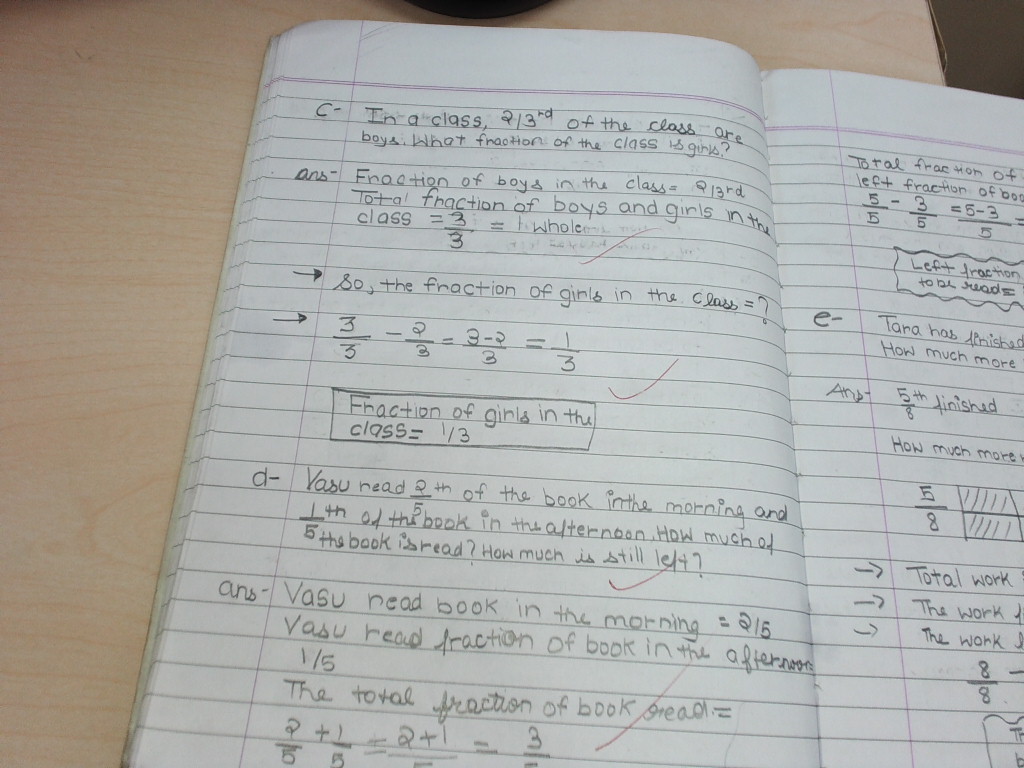 c- In a class, 2/3rd of the class are
boys. What fraction of the class is girls?
ans- Fraction of boys in the class= 2/3rd
Total fraction of boys and girls in the
class = 3/3 = 1 whole
→ So, the fraction of girls in the class = ?
→ 3/3 - 2/3 = 3-2/3 = 1/3
Fraction of girls in the
class= 1/3
d- Vasu read 2/5 th of the book in the morning and
1/5 th of the book in the afternoon. How much of
the book is read? How much is still left?
ans- Vasu read book in the morning = 2/5
Vasu read fraction of book in the afternoon
1/5
The total fraction of book read =
2/5 + 1/5 = 2+1 = 3
Total fraction of
left fraction of
5/5 - 3/5 = 5-3/5 =
Left fraction
to be read=
e- Tara has finished
How much more
Ans- 5/8 th finished
How much more
5/8
→ Total work
→ The work
→ The work
8/8 -